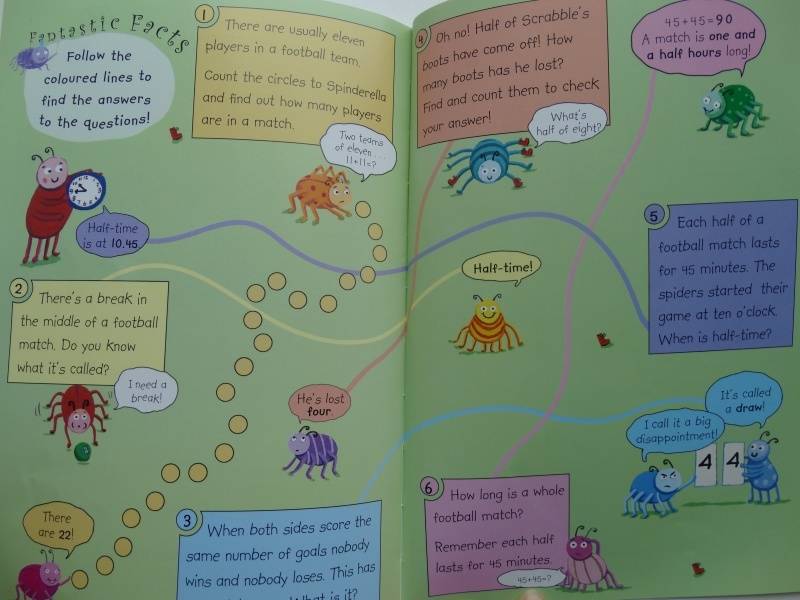 Fantastic Facts
Follow the
coloured lines to
find the answers
to the questions!
1
There are usually eleven
players in a football team.
Count the circles to Spinderella
and find out how many players
are in a match.
Two teams
of eleven...
11+11=?
Half-time
is at 10.45
2
There's a break in
the middle of a football
match. Do you know
what it's called?
I need a
break!
He's lost
four.
There
are 22!
3
When both sides score the
same number of goals nobody
wins and nobody loses. This has
What is it?
4
Oh no! Half of Scrabble's
boots have come off! How
many boots has he lost?
Find and count them to check
your answer!
What's
half of eight?
45+45=90
A match is one and
a half hours long!
Half-time!
5
Each half of a
football match lasts
for 45 minutes. The
spiders started their
game at ten o'clock.
When is half-time?
It's called
a draw!
I call it a big
disappointment!
4 4
6
How long is a whole
football match?
Remember each half
lasts for 45 minutes.
45+45=?